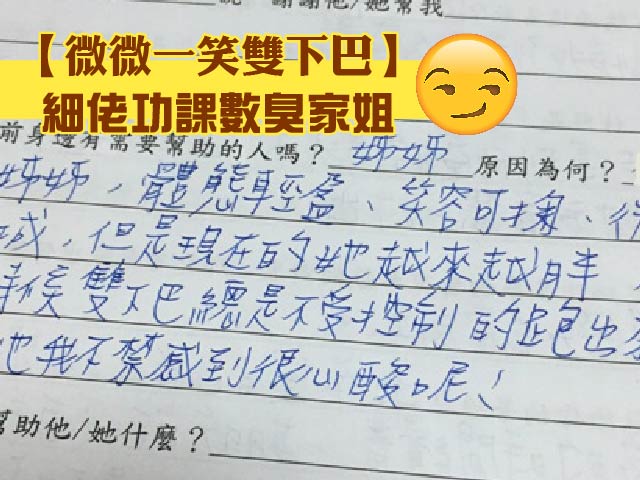 謝謝他/她幫我
【微微一笑雙下巴】
細佬功課數臭家姐
前身邊有需要幫助的人嗎? 姊姊 原因為何?
姊姊,體態輕盈、笑容可掬、
成,但是現在的她越來越胖,
時侯雙下巴總是不受控制的跑出來
她我不禁感到很心酸呢!
幫助他/她什麼?